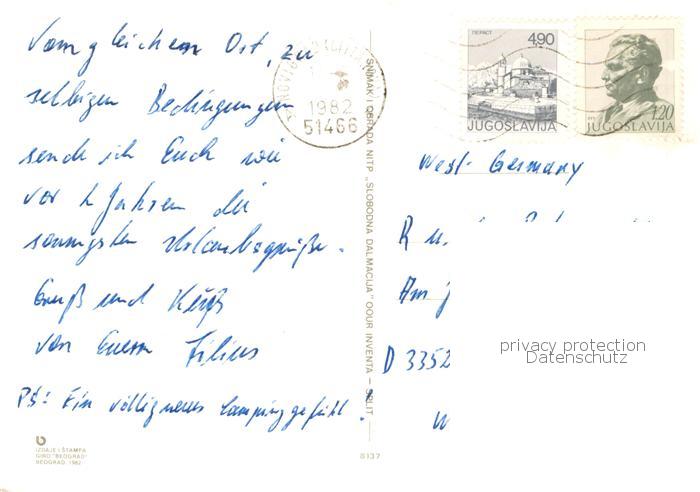 Vom gleichen Ort, zu
selbigen Bedingungen
sende ich Euch wie
vor 2 Jahren die
sonnigsten Urlaubsgrüße.
Gruß und Küß
von Eurem Filius
PS: Ein völlig neues Campinggefühl!
IZDAJE I ŠTAMPA
GIRO "BEOGRAD"
BEOGRAD, 1982.
SNIMAK I OBRADA NITP „SLOBODNA DALMACIJA" OOUR INVENTA — SPLIT
8137
1982
51466
ПЕРАСТ
4,90
JUGOSLAVIJA
1,20
JUGOSLAVIJA
West-Germany
Am
D 3352
privacy protection
Datenschutz